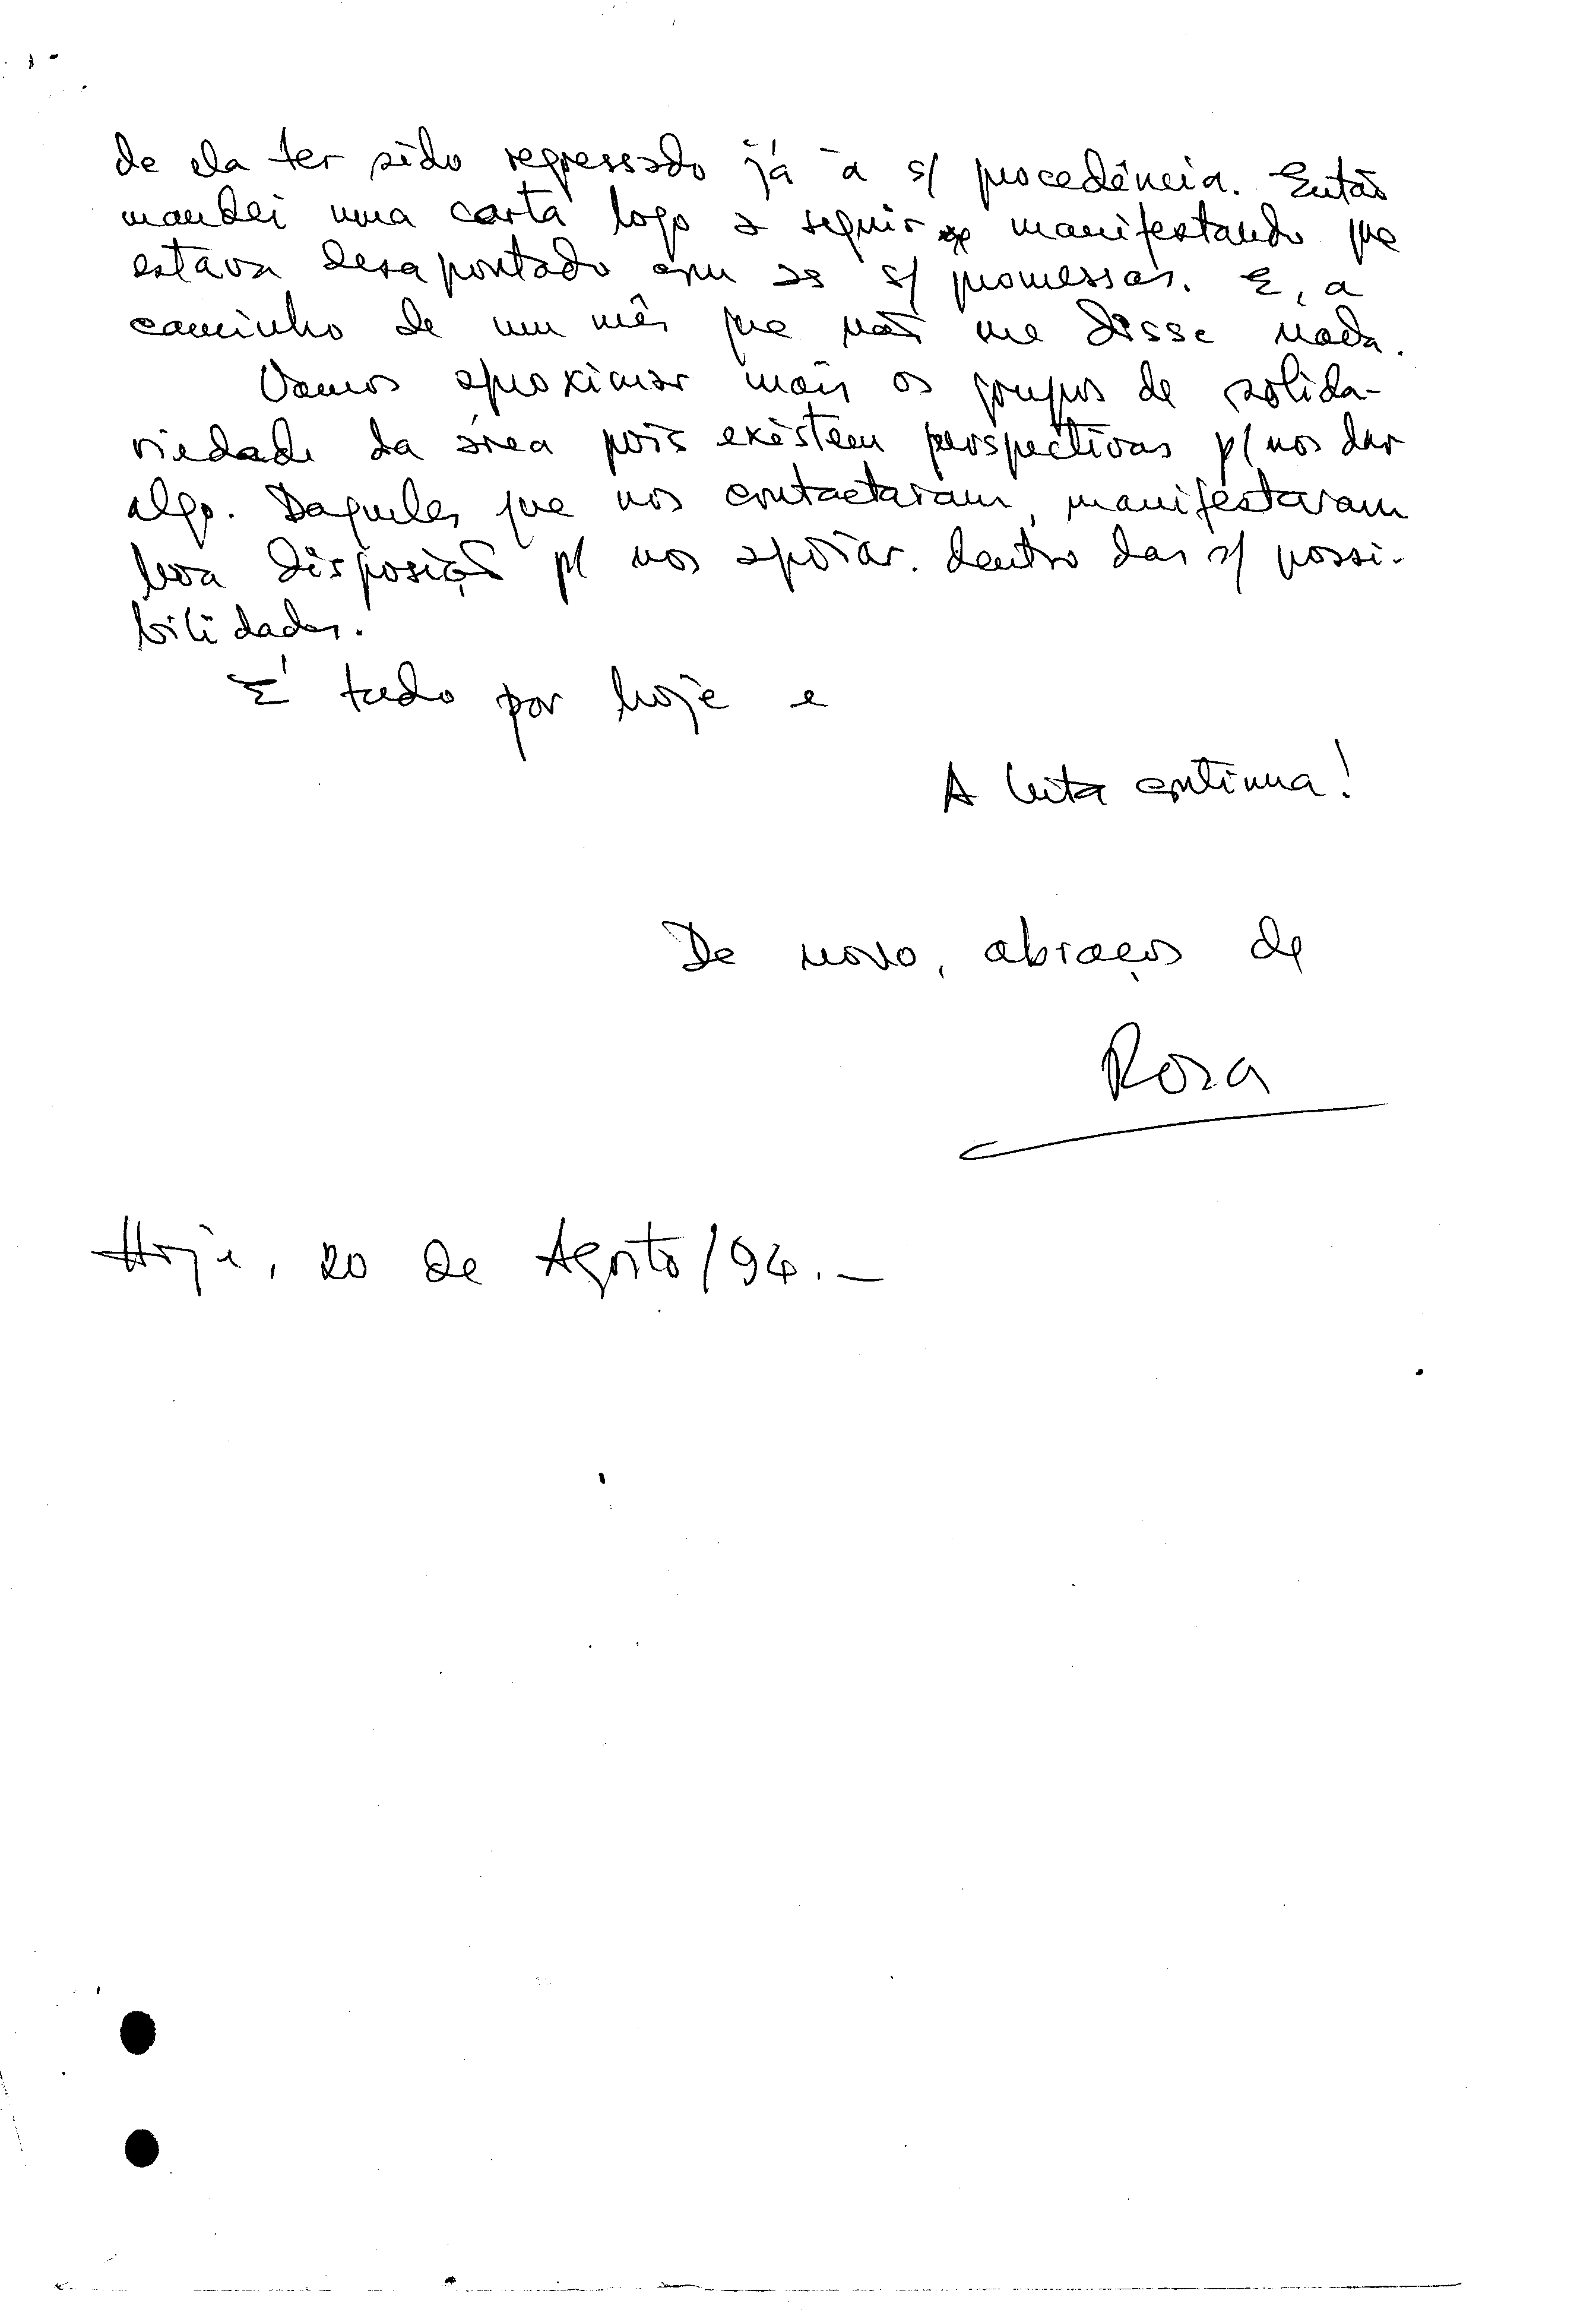 de ela ter sido regressado já à s/ procedência. Então
mandei uma carta logo a seguir manifestando que
estava desapontado com as s/ promessas. E, a
caminho de um mês que não me disse nada.
Vamos aproximar mais os grupos de solida-
riedade da área pois existem perspectivas p/ nos dar
algo. Daqueles que nos contactaram, manifestaram
boa disposição p/ nos apoiar. dentro das s/ possi-
bilidades.
É tudo por hoje e
A luta continua!
De novo, abraços de
Rosa
Hoje, 20 de Agosto/94.-